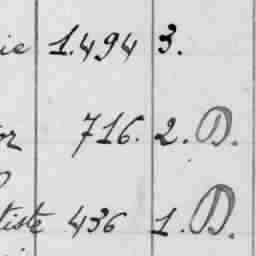 ie 1.494 3.
or 716. 2. D.
tiste 436 1. D.